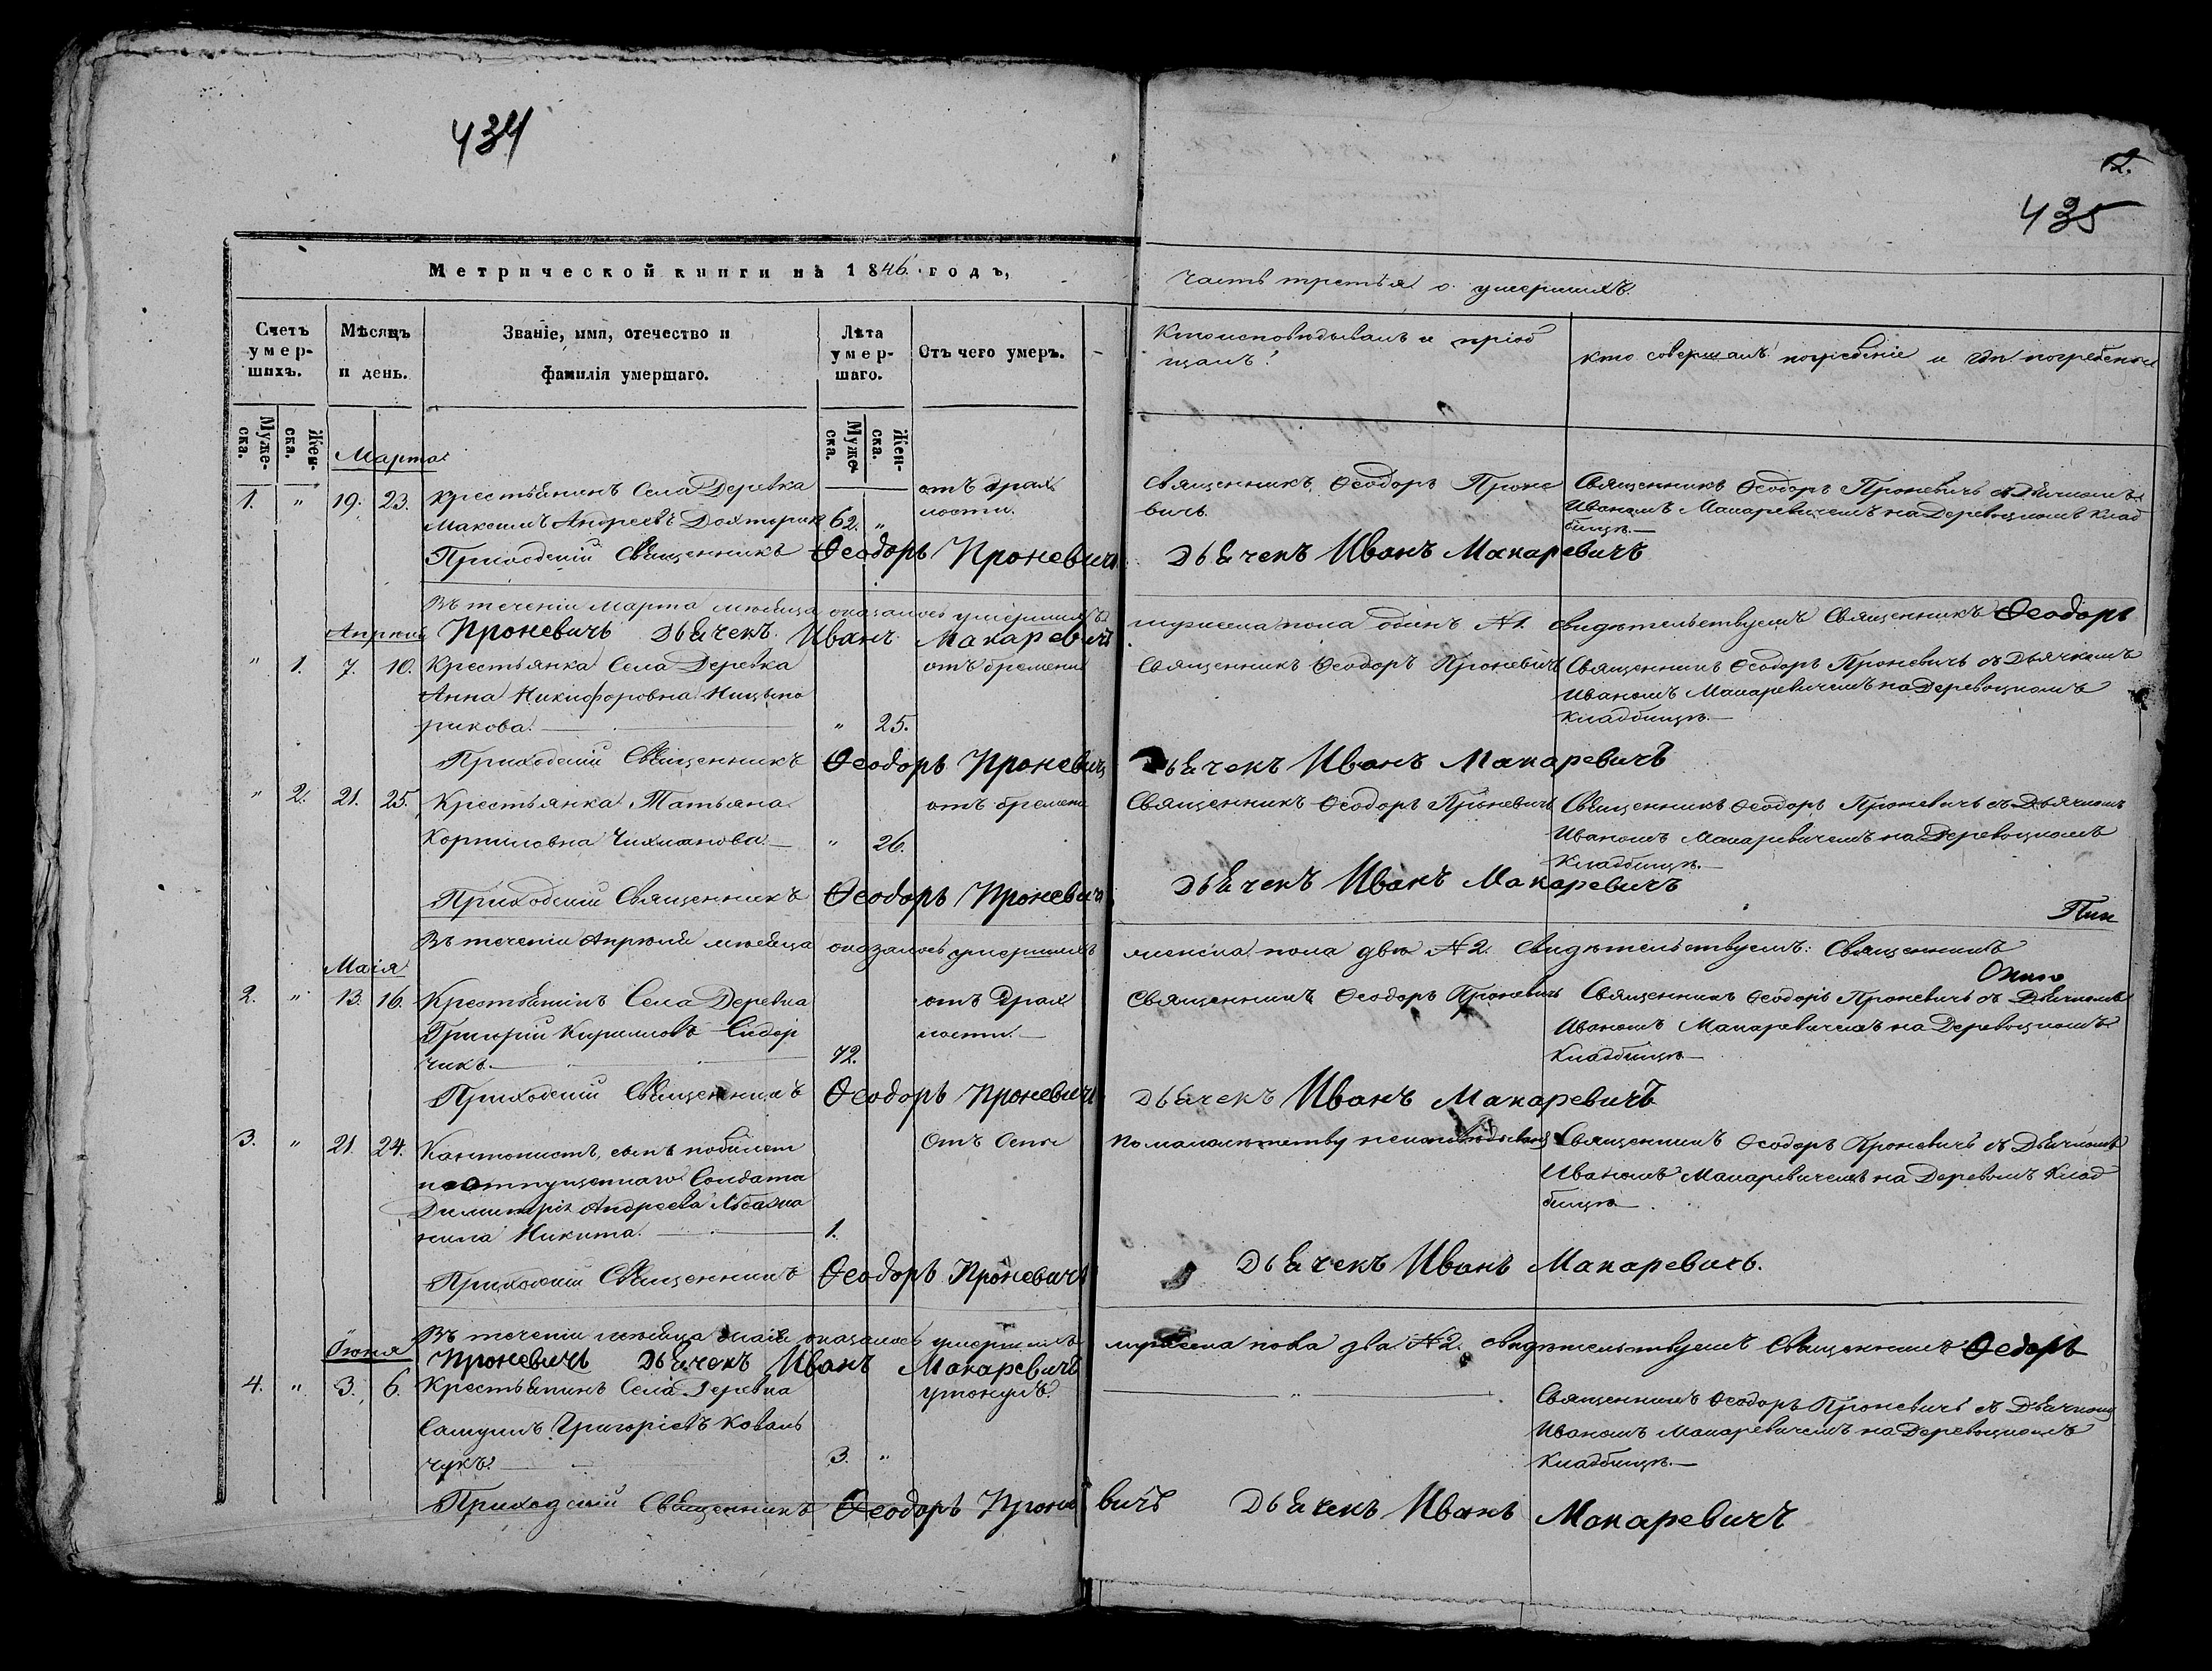 434
12.
435
Метрической книги на 1846. годъ,
Часть третья о умершихъ.
Счетъ умер-шихъ.
Мѣсяцъ и день.
Званіе, имя, отечество и
фамилія умершаго.
Лѣта умер-шаго.
Отъ чего умеръ.
Кто исповѣдывалъ и пріоб
щалъ?
Кто совершалъ погребеніе и гдѣ погребены
Муже-ска.
Жен-ска.
Муже-ска.
Жен-ска.
Марта
1. " 19. 23. Крестьянинъ Села Деревка
Максимъ Андреевъ Дохторик 62. "
отъ драх
лости.
Священникъ Ѳеодоръ Проне
вичь
Священникъ Ѳеодоръ Проневичь съ Дьячкомъ
Иваномъ Макаревичемъ на Деревоцкомъ Клад
бищѣ.—
Приходскій Священникъ Ѳеодоръ Проневичь Дьячекъ Иванъ Макаревичъ
Въ теченіи Марта мѣсяца оказалось умершихъ мужеска пола одинъ №1. Свидѣтельствуемъ Священникъ Ѳеодоръ
Проневичь Дьячекъ Иванъ Макаревичъ
Апрѣль
" 1. 7. 10. Крестьянка Села Деревка
Анна Никифоровна
рикова. " 25.
отъ бремени
Священникъ Ѳеодоръ Проневичъ
Священникъ Ѳеодоръ Проневичь съ Дьячкомъ
Иваномъ Макаревичемъ на Деревоцкомъ
Кладбищѣ.—
Приходскій Священникъ Ѳеодоръ Проневичъ Дьячекъ Иванъ Макаревичъ
" 2. 21. 25. Крестьянка Татьяна
Корниловна " 26.
отъ бремени
Священникъ Ѳеодоръ Проневичь
Священникъ Ѳеодоръ Проневичь съ Дьячкомъ
Иваномъ Макаревичемъ на Деревоцкомъ
Кладбищѣ.—
Приходскій Священникъ Ѳеодоръ Проневичъ Дьячекъ Иванъ Макаревичъ
Въ теченіи Апрѣля мѣсяца оказалось умершихъ женска пола двѣ №2. Свидѣтельствуемъ: Священникъ
Маія
2. " 13. 16. Крестьянинъ Села Деревка
Григорій Кириловъ Сидор
чикъ.— 72.
отъ Драх
лости.—
Священникъ Ѳеодоръ Проневичь
Священникъ Ѳеодоръ Проневичь съ Дьячкомъ
Иваномъ Макаревичемъ на Деревоцкомъ
Кладбищѣ—
Приходскій Священникъ Ѳеодоръ Проневичъ Дьячекъ Иванъ Макаревичъ
3. " 21. 24. Кантонистъ, сынъ
отпущеннаго Солдата
Димитрія Андреева
Никита. 1.
Отъ Оспы
По малолѣтству неисповѣдыванъ
Священникъ Ѳеодоръ Проневичь съ Дьячкомъ
Иваномъ Макаревичемъ на Клад
бищѣ—
Приходскій Священникъ Ѳеодоръ Проневичъ Дьячекъ Иванъ Макаревичъ.
Въ теченіи мѣсяца Маія оказалось умершихъ мужеска пола два №2. свидѣтельствуемъ Священникъ Ѳедоръ
Проневичь Дьячекъ Иванъ Макаревичъ
Іюня
4. " 3. 6. Крестьянинъ Села Деревка
Самуилъ Григоріевъ Коваль
чукъ. 3. "
утонулъ.
"
Священникъ Ѳеодоръ Проневичь съ Дьячкомъ
Иваномъ Макаревичемъ на Деревоцкомъ
Кладбищѣ.—
Приходскій Священникъ Ѳеодоръ Проневичъ Дьячекъ Иванъ Макаревичъ